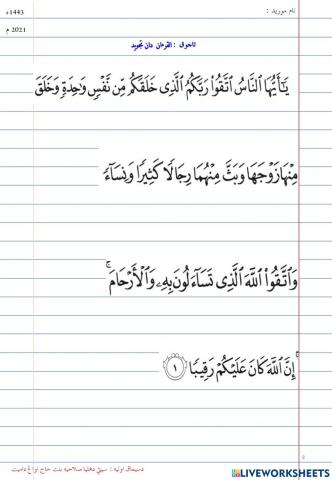 نام موريد :
1443ه
2021 م
تاجوق : القرءان دان تجويد
يَٰٓأَيُّهَا ٱلنَّاسُ ٱتَّقُوا۟ رَبَّكُمُ ٱلَّذِى خَلَقَكُم مِّن نَّفْسٍ وَٰحِدَةٍ وَخَلَقَ
مِنْهَا زَوْجَهَا وَبَثَّ مِنْهُمَا رِجَالًا كَثِيرًا وَنِسَآءً
وَٱتَّقُوا۟ ٱللَّهَ ٱلَّذِى تَسَآءَلُونَ بِهِۦ وَٱلْأَرْحَامَ ۚ
إِنَّ ٱللَّهَ كَانَ عَلَيْكُمْ رَقِيبًا ١
دسدياق اوليه : سيتي دهليا صلاحيه بنت حاج
LIVEWORKSHEETS